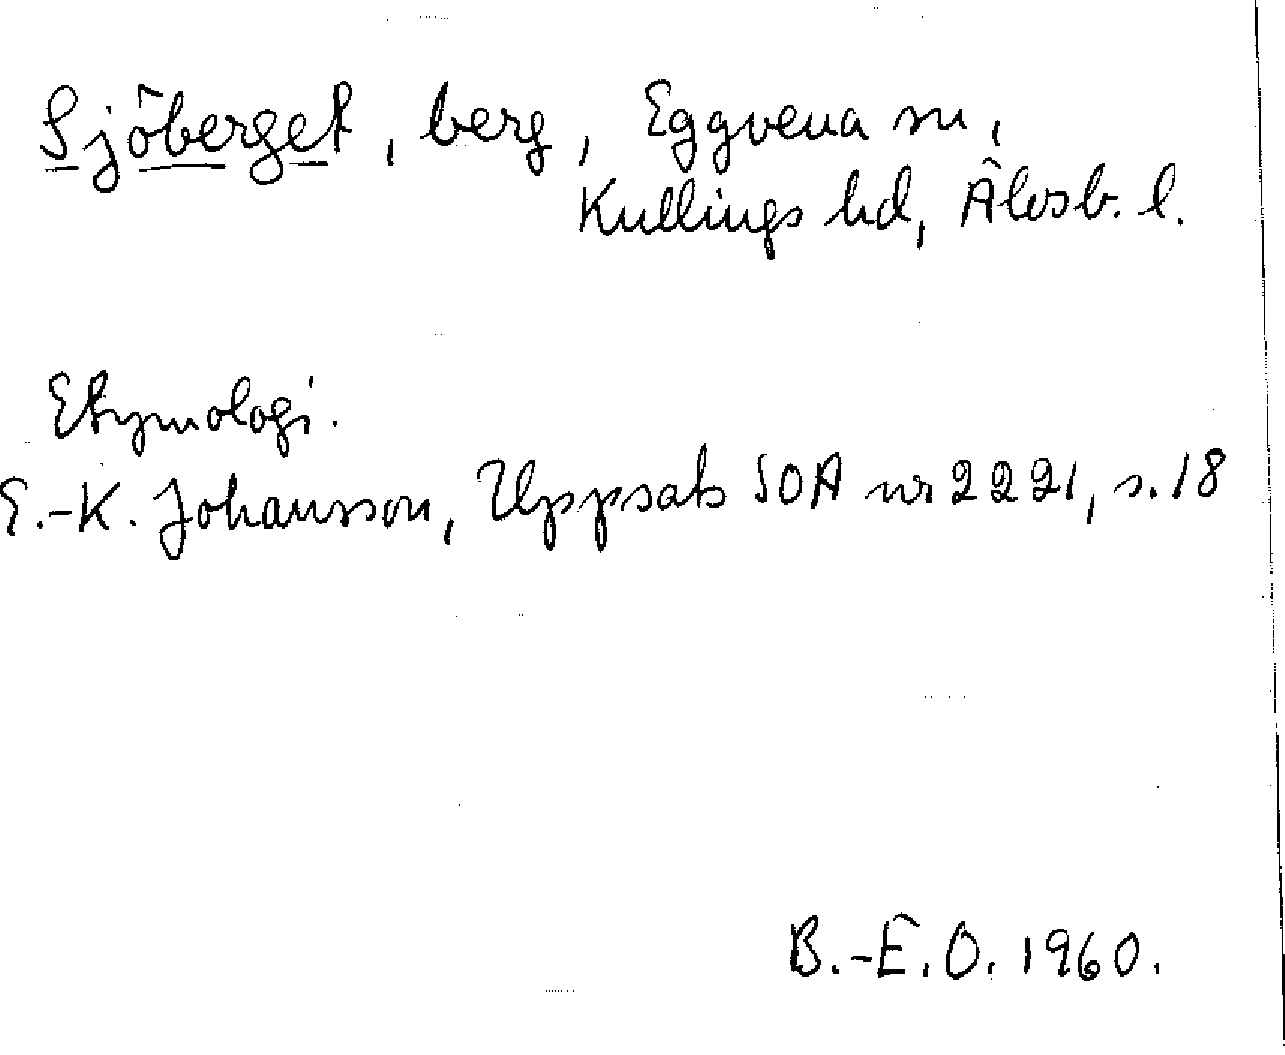 Sjöberget, berg, Eggvena sn,
Kullings hd, Älvsb. l.
Etymologi.
E.-K. Johansson, Uppsats SOA nr 2221, s. 18
B.-E. O. 1960.